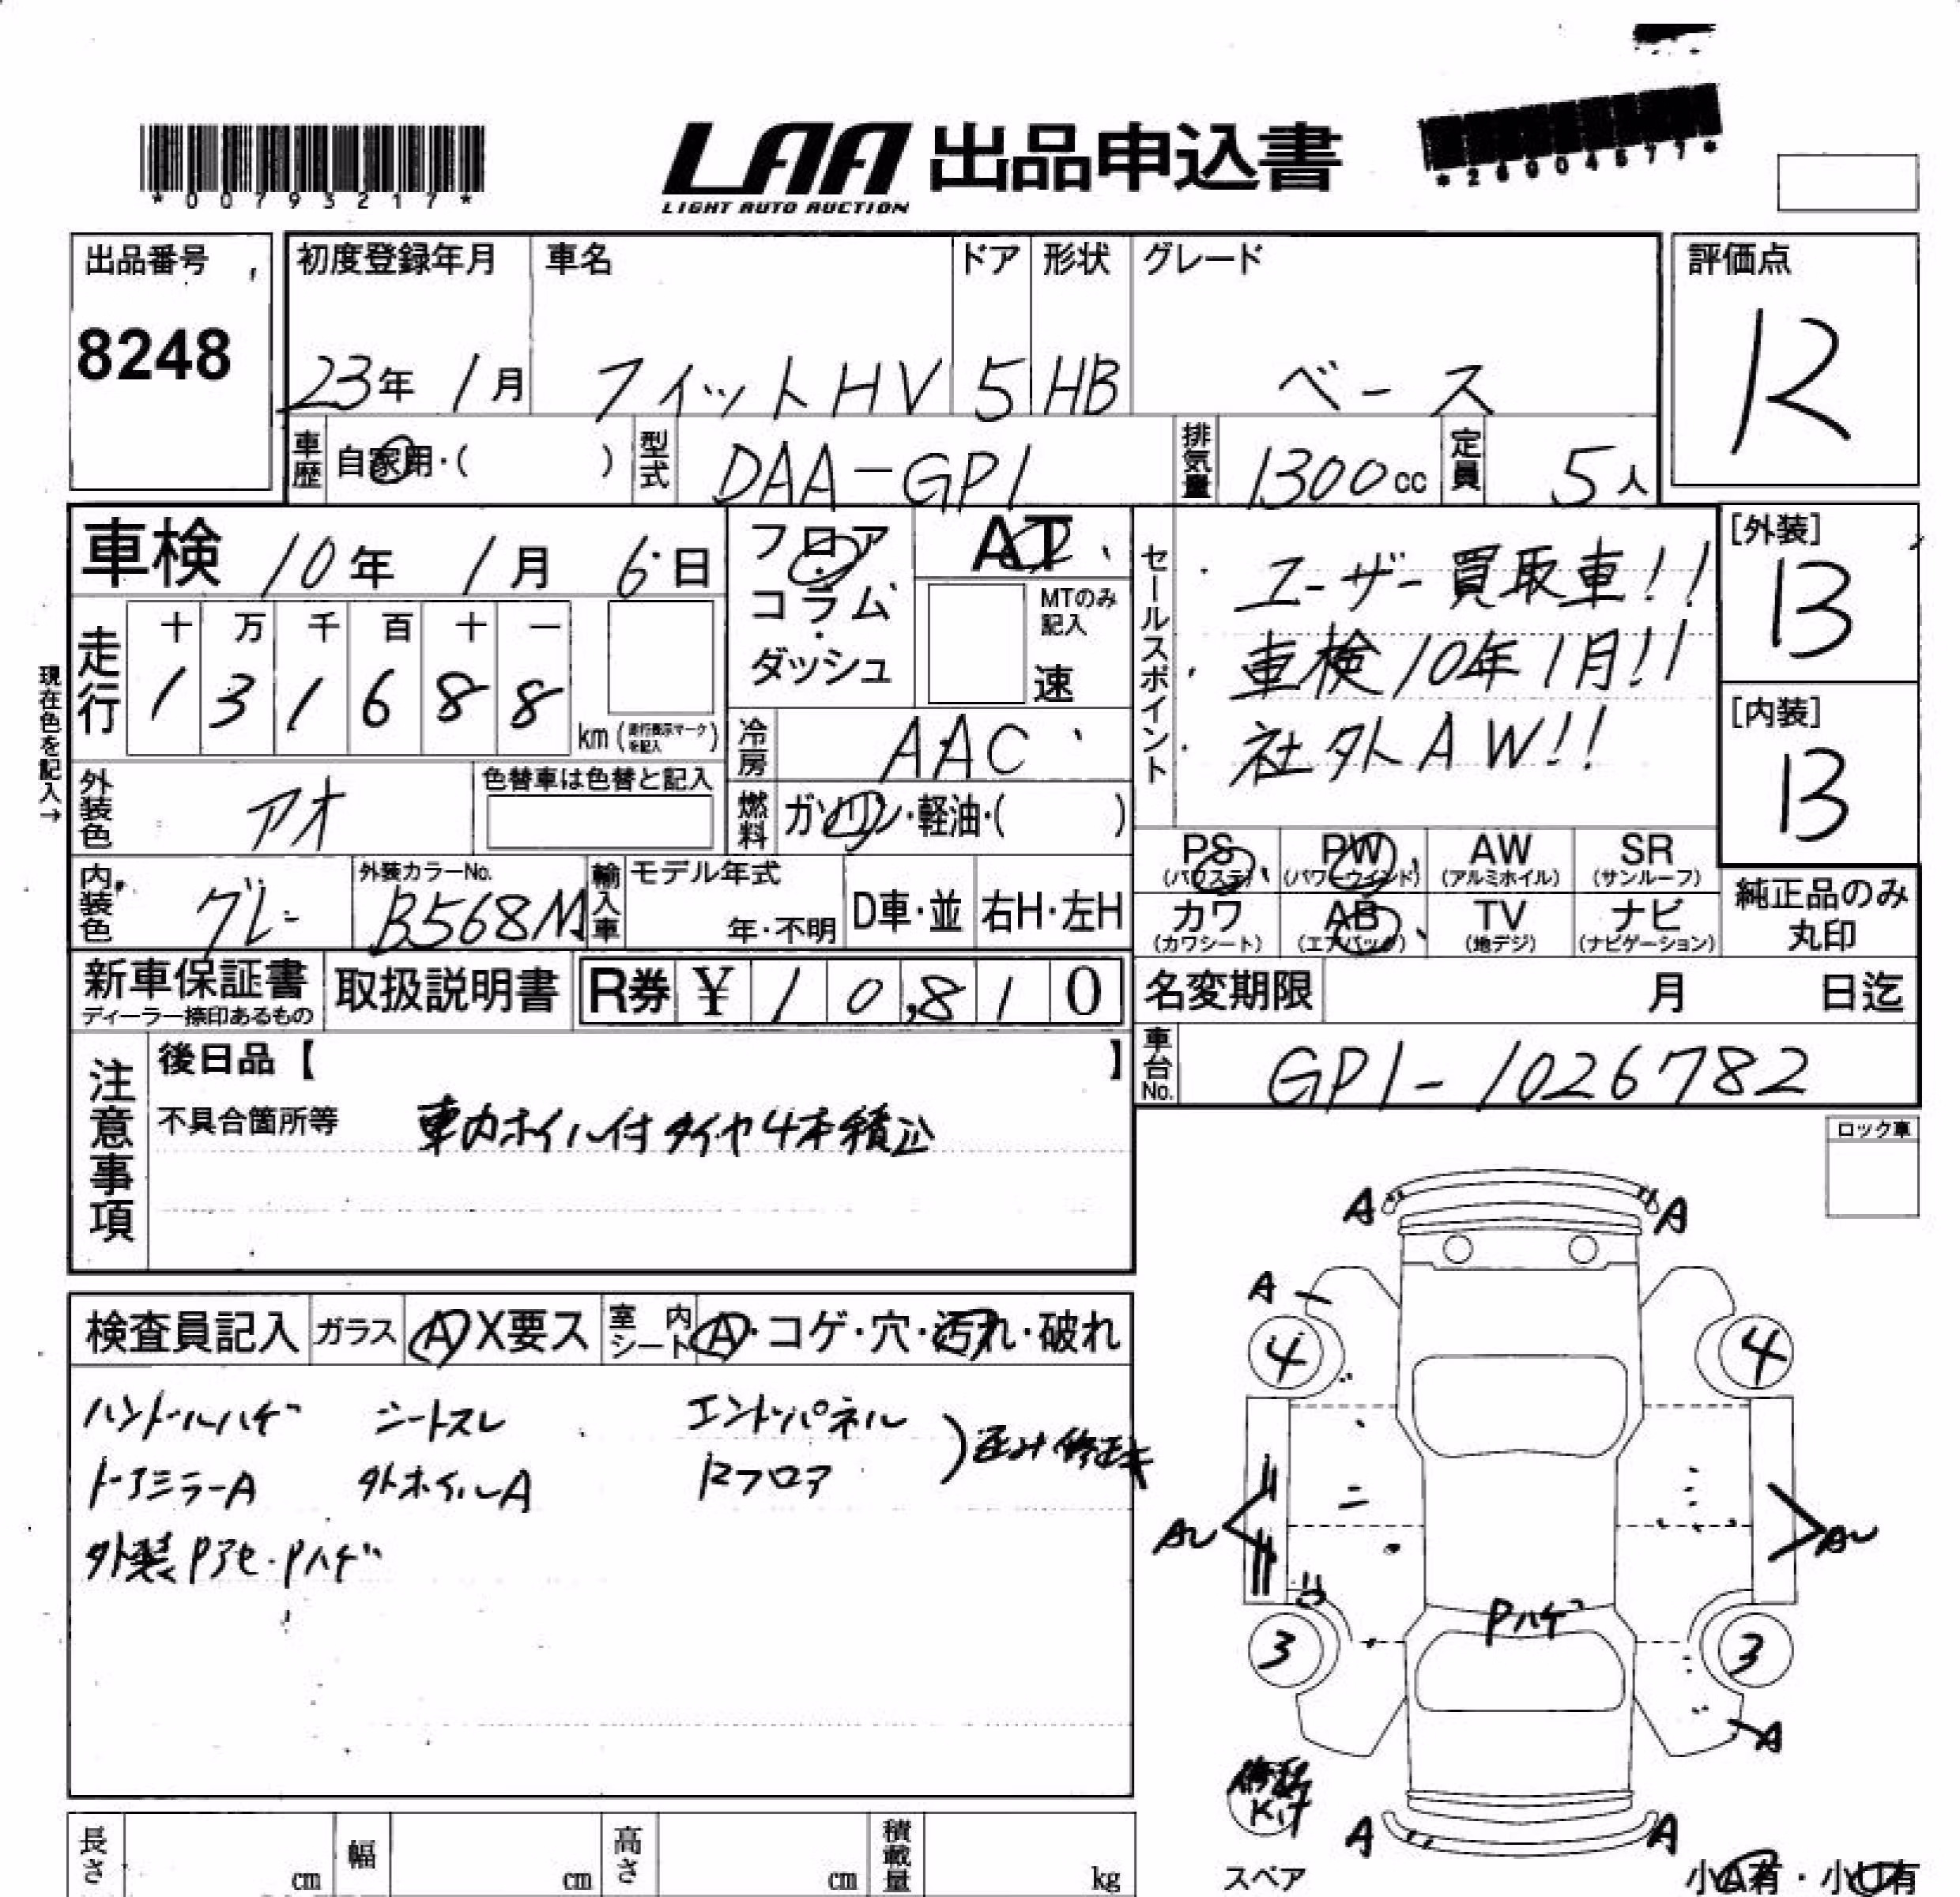 *00793217*
LAA 出品申込書
LIGHT AUTO AUCTION
*26004577*
出品番号
8248
初度登録年月
23年 1月
車名
フィットHV
ドア
5
形状
HB
グレード
ベース
評価点
R
車歴 自家用・( )
型式 DAA-GP1
排気量 1300cc
定員 5人
車検 10年 1月 6日
フロア・コラム・ダッシュ
AT
MTのみ記入
速
セールスポイント
ユーザー買取車!!
車検10年1月!!
社外AW!!
[外装]
B
[内装]
B
現在色を記入→
走行
十 万 千 百 十 一
1 3 1 6 8 8
km (走行表示マークを記入)
冷房 AAC
外装色 アオ
色替車は色替と記入
燃料 ガソリン・軽油・( )
内装色 グレー
外装カラーNo.
B568M
輸入車
モデル年式
年・不明
D車・並
右H・左H
PS (パワステ)
PW (パワーウインド)
AW (アルミホイル)
SR (サンルーフ)
カワ (カワシート)
AB (エアバック)
TV (地デジ)
ナビ (ナビゲーション)
純正品のみ丸印
新車保証書
ディーラー捺印あるもの
取扱説明書
R券 ¥ 10,810
名変期限 月 日迄
車台No. GP1-1026782
注意事項
後日品【 】
不具合箇所等 車内ホイル付タイヤ4本積込
ロック車
検査員記入
ガラス A X要ス
室内シート A・コゲ・穴・汚れ・破れ
ハンドルハゲ シートスレ エンドパネル
ドアミラーA 外ホイルA Rフロア
歪み修正キ
外装Pアセ・Pハゲ
A A
A
4 4
AU AU
Pハゲ
3 3
A
修理Kit
スペア
A A
小A有・小U有
長さ cm
幅 cm
高さ cm
積載量 kg